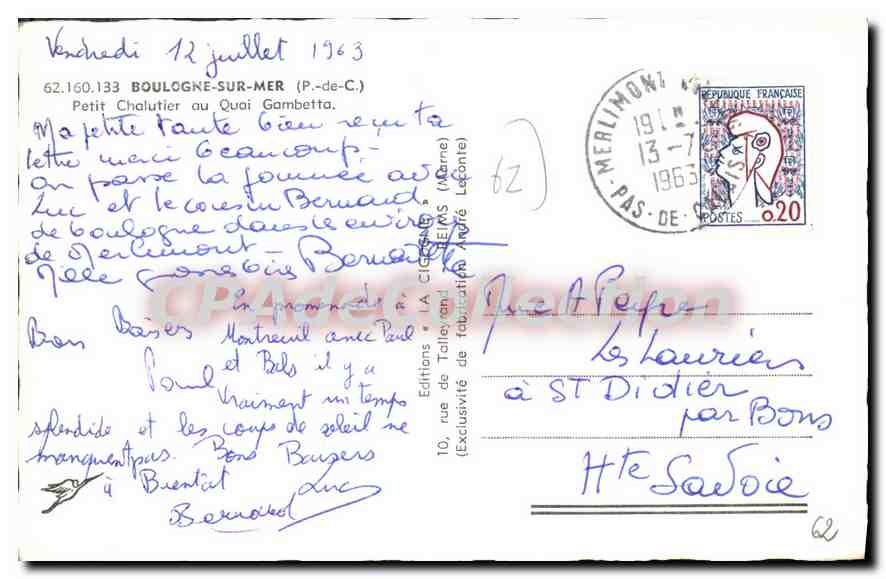 Vendredi 12 juillet 1963
62.160.133 BOULOGNE-SUR-MER (P.-de-C.)
Petit Chalutier au Quai Gambetta.
Ma petite tante bien reçu ta
lettre merci beaucoup -
on passe la journée avec
Luc et le cousin Bernard
de Boulogne dans les environs
de Merlimont -
Mille gros bisers Bernadette
Bons Baisers
Paul
En promenade à
Montreuil avec Paul
et Bebs il y a
vraiment un temps
splendide et les coups de soleil ne
manquent pas. Bons Baisers
à Bientôt Luc
Bernard
Editions « LA CIGOGNE »
10, rue de Talleyrand - REIMS (Marne)
(Exclusivité de fabrication André Leconte)
62
MERLIMONT
PAS-DE-CALAIS
19
13-7
1963
RÉPUBLIQUE FRANÇAISE
POSTES 0,20
Les Lauriers
à ST Didier
par Bons
Hte Savoie
62
CPAdeCollection